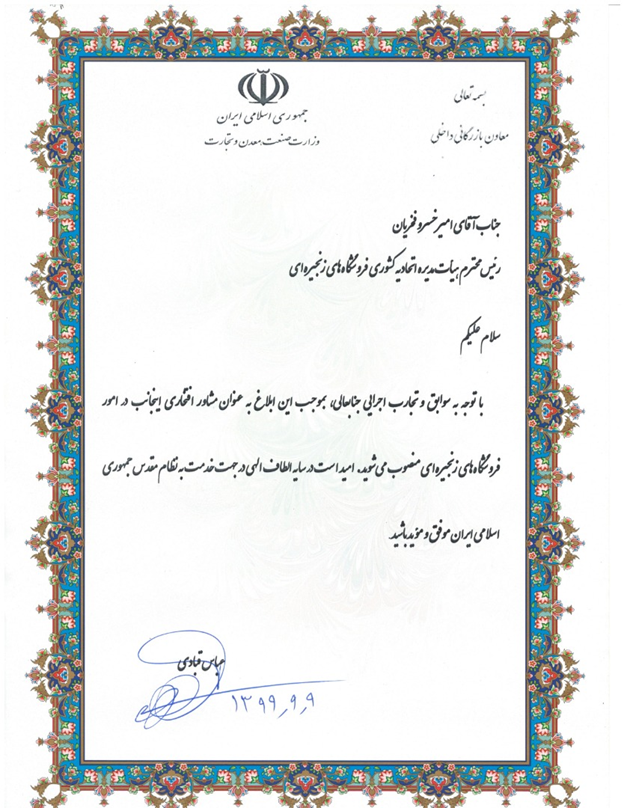 بسمه تعالی
جمهوری اسلامی ایران
معاون بازرگانی داخلی
وزارت صنعت، معدن و تجارت
جناب آقای امیر خسرو فخریان
رئیس محترم هیات مدیره اتحادیه کشوری فروشگاه های زنجیره ای
سلام علیکم
با توجه به سوابق و تجارب اجرایی جنابعالی، بموجب این ابلاغ به عنوان مشاور افتخاری اینجانب در امور
فروشگاه های زنجیره ای منصوب می شوید. امید است در سایه الطاف الهی در جهت خدمت به نظام مقدس جمهوری
اسلامی ایران موفق و مؤید باشید
عباس قبادی
۱۳۹۹٫۹٫۹